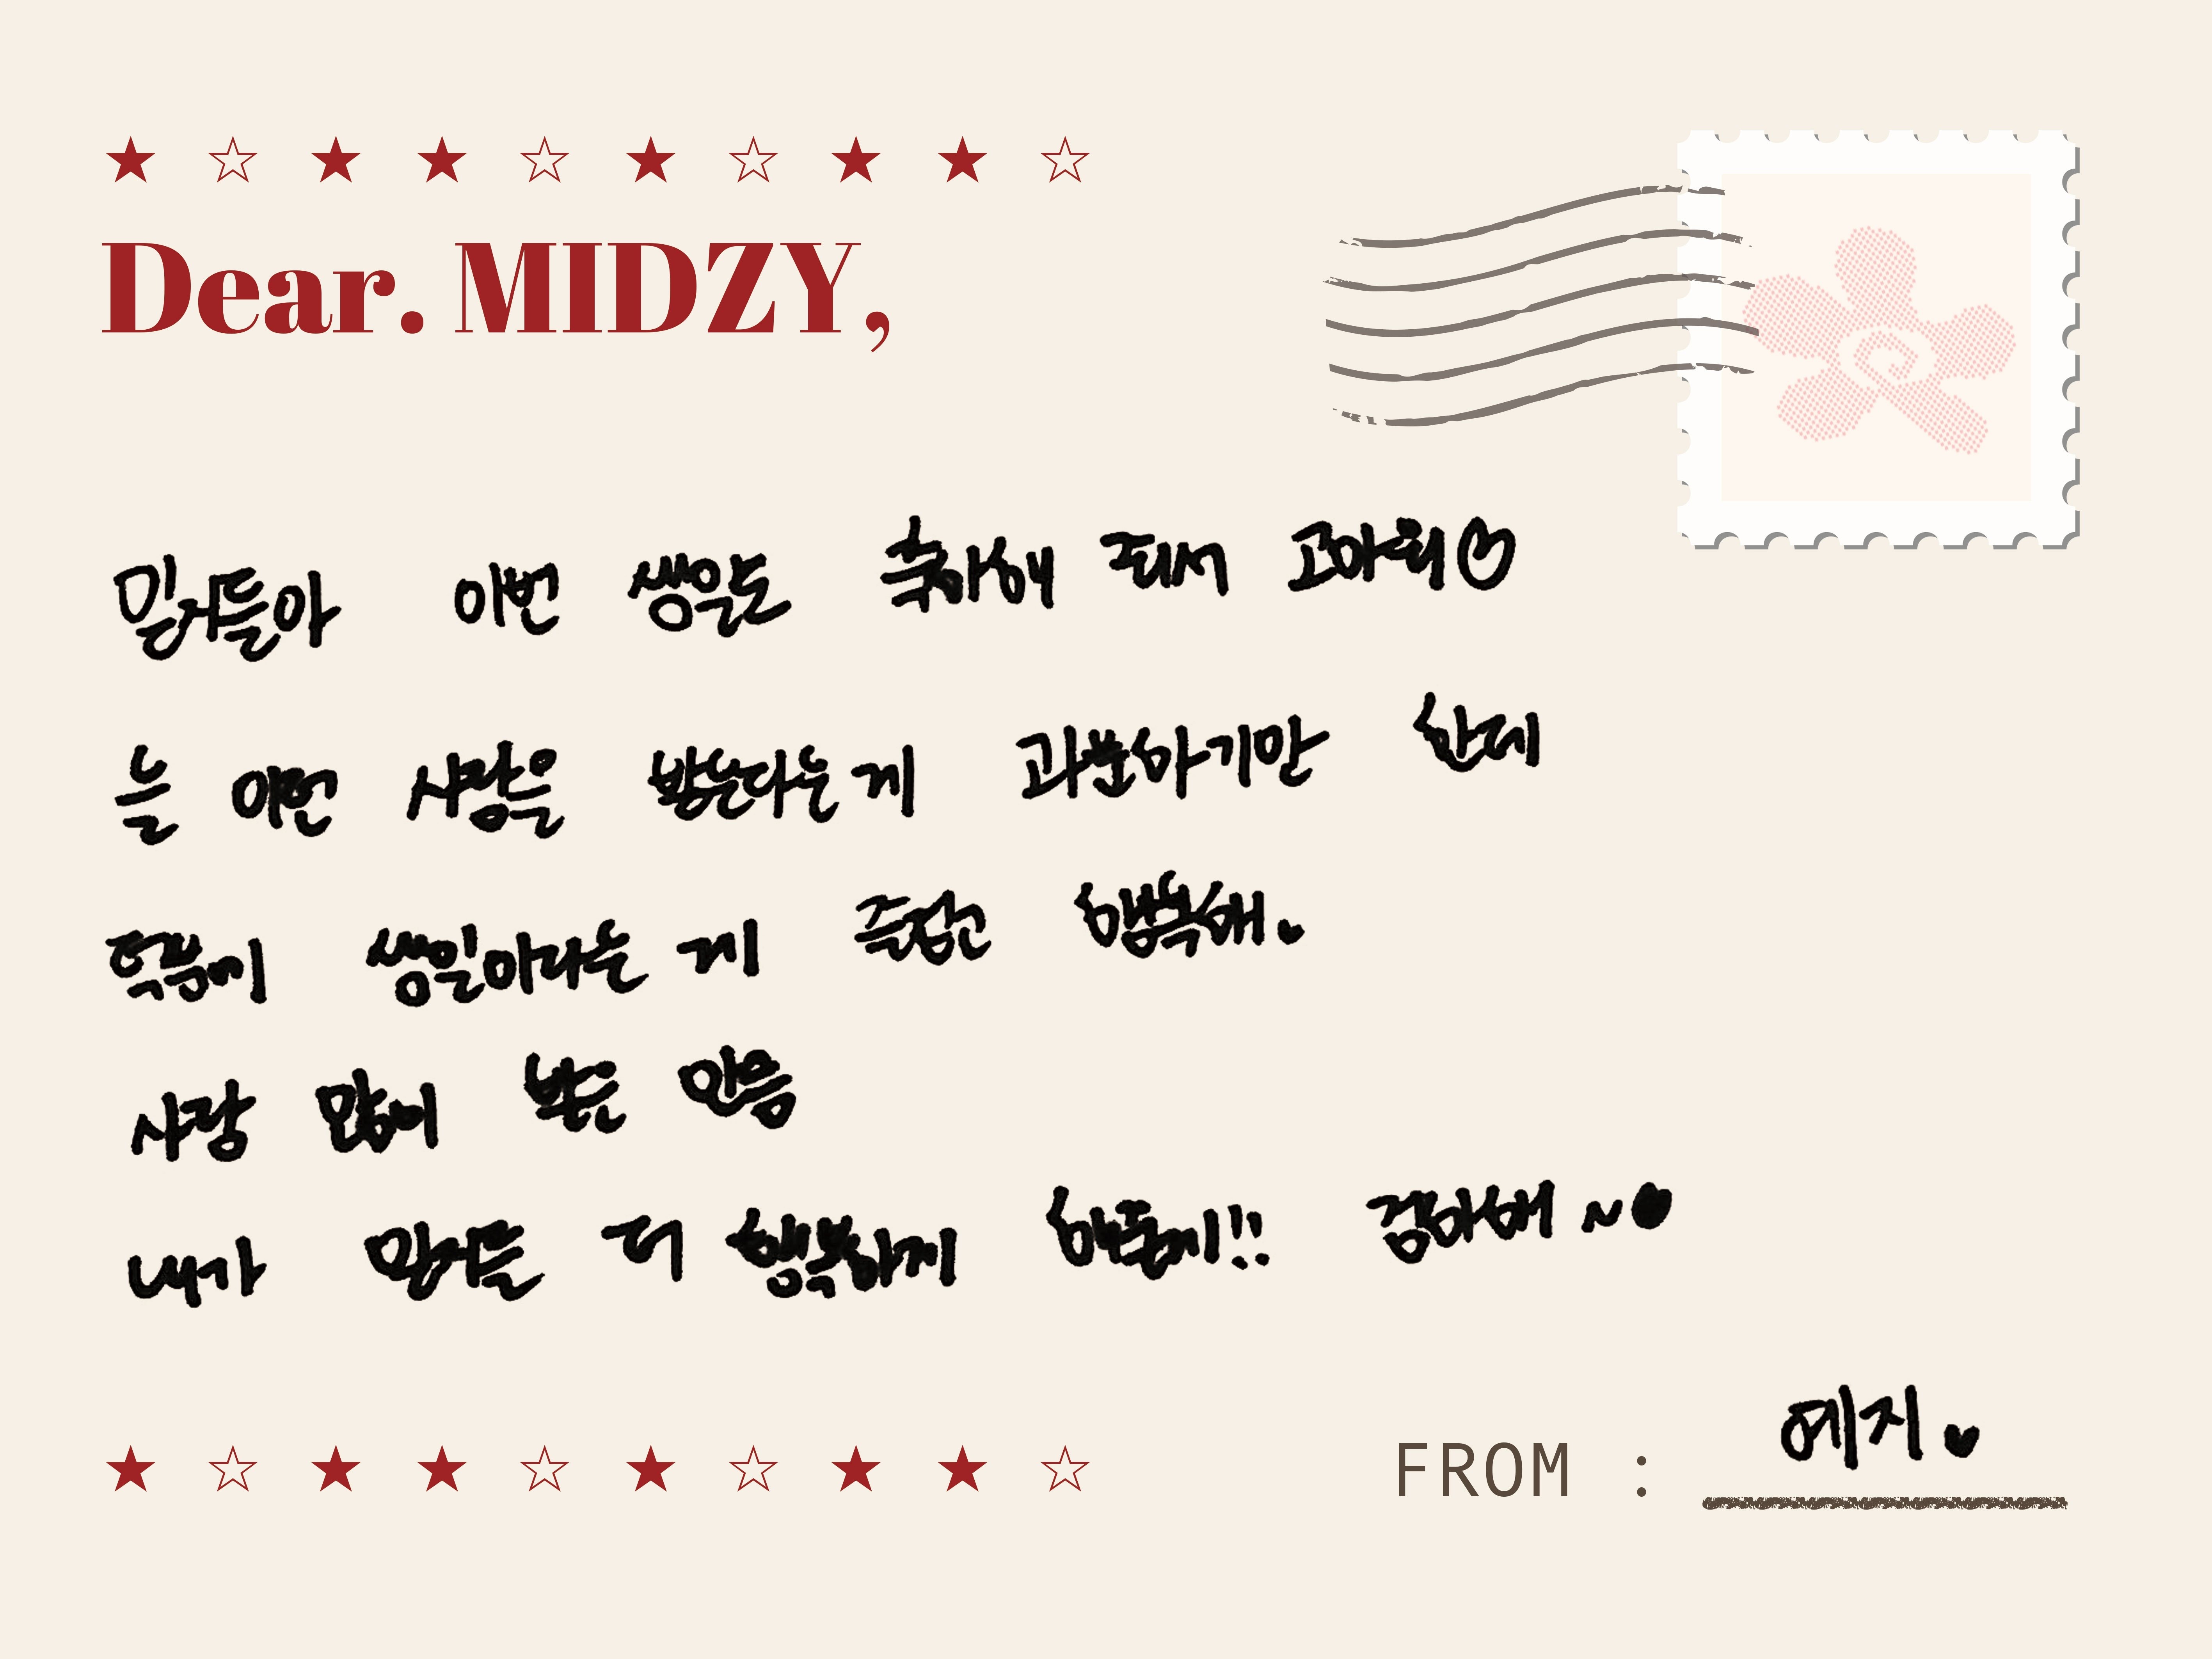 Dear. MIDZY,
믿지들아 이번 생일도 축하해 줘서 고마워♡
늘 이런 사랑을 받는다는게 과분하기만 한데
덕분에 생일이라는 게 즐겁고 행복해♥
사랑 많이 받은 만큼
내가 믿지들 더 행복하게 해줄게!! 정말해~♥
FROM : 예지♥